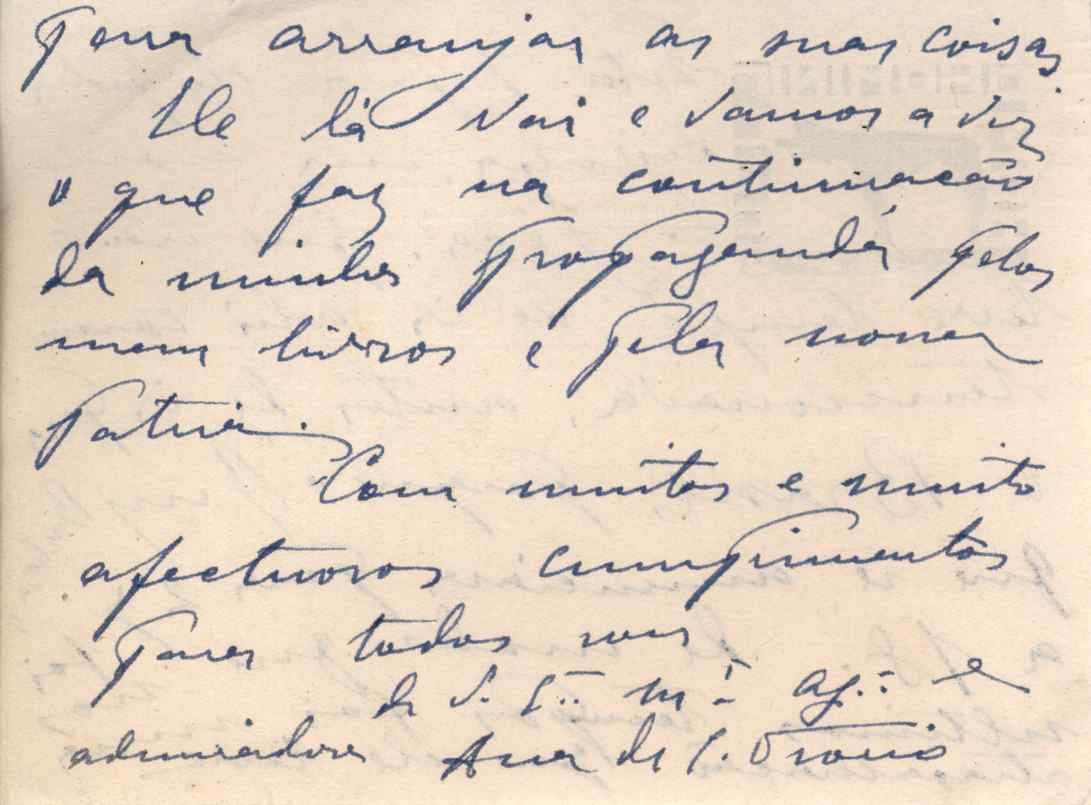 para arranjar as suas coisas.
Ele lá vai e vamos a ver
o que faz na continuação
da minha propaganda pelos
meus livros e pela nossa
Patria.
Com muitos e muito
afectuosos cumprimentos
para todos sou
de V. Ex.ª m.to ag.da e
admiradora Ana de C. Osório